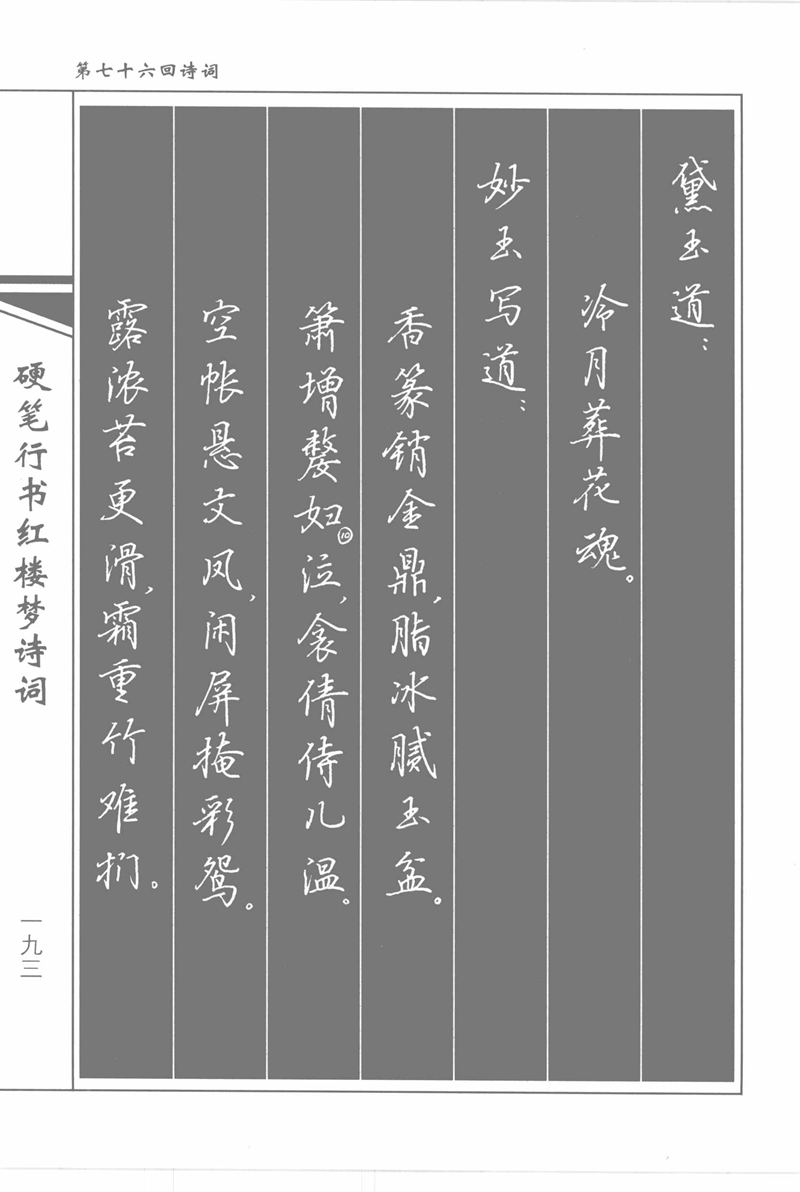 第七十六回诗词
黛玉道：
冷月葬花魂。
妙玉写道：
香篆销金鼎，脂冰腻玉盆。
箫增嫠妇⑩泣，衾倩侍儿温。
空帐悬文凤，闲屏掩彩鸳。
露浓苔更滑，霜重竹难扪。
硬笔行书红楼梦诗词
一九三